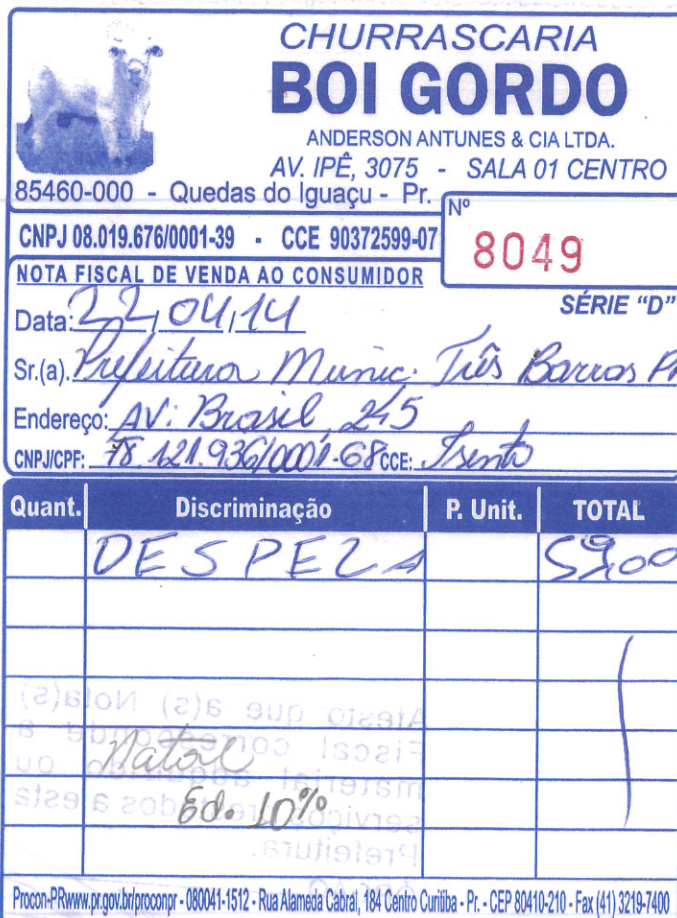 CHURRASCARIA
BOI GORDO
ANDERSON ANTUNES & CIA LTDA.
AV. IPÊ, 3075 - SALA 01 CENTRO
85460-000 - Quedas do Iguaçu - Pr.
CNPJ 08.019.676/0001-39 - CCE 90372599-07
Nº
8049
NOTA FISCAL DE VENDA AO CONSUMIDOR
SÉRIE “D”
Data: 22/04/14
Sr.(a). Prefeitura Munic. Três Barras PR
Endereço: AV: Brasil, 245
CNPJ/CPF: 78.121.936/0001-68 CCE: Isento
Quant. Discriminação P. Unit. TOTAL
DESPEZA 59,00
Atesto que a(s) Nota(s)
Fiscal corresponde a
material adquirido ou
serviços prestados a esta
Prefeitura.
Natal
Ed. 10%
Procon-PRwww.pr.gov.br/proconpr - 080041-1512 - Rua Alameda Cabral, 184 Centro Curitiba - Pr. - CEP 80410-210 - Fax (41) 3219-7400